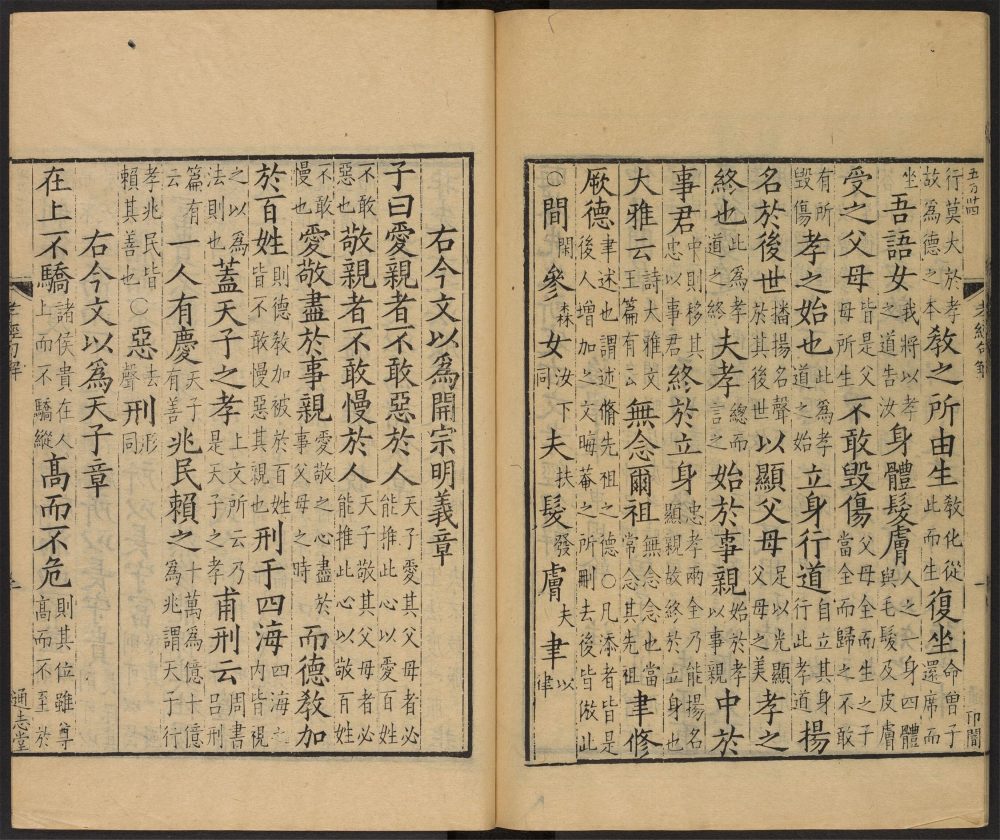 孝經句解 一
行莫大於孝故爲德之本教之所由生教化從此而生復坐命曾子還席而
坐吾語女我將以孝之道告汝身體髮膚人之一身四體與毛髮及皮膚
受之父母皆是父母所生不敢毀傷父母全而生之子當全而歸之不敢
有所毀傷孝之始也此爲孝道之始立身行道自立其身行此孝道揚
名於後世播揚名聲於其後世以顯父母足以光顯父母之美孝之
終也此爲孝道之終夫孝總而言之始於事親始於孝以事親中於
事君中則移其忠以事君終於立身忠孝兩全乃能揚名顯親故終於立身也
大雅云詩大雅文王篇有云無念爾祖無念念也當常念其先祖聿修
厥德聿述也謂述脩先祖之德○凡添者皆是後人增加之文晦菴之所刪去後皆倣此
○閒閑參森女汝下同夫扶髮發膚夫聿以律
右今文以爲開宗明義章
子曰愛親者不敢惡於人天子愛其父母者必能推此心以愛百姓
不敢惡也敬親者不敢慢於人天子敬其父母者必能推此心以敬百姓
不敢慢也愛敬盡於事親愛敬之心盡於事父母之時而德教加
於百姓則德教加被於百姓皆不敢慢惡其親也刑于四海四海之內皆視
之以爲法則也蓋天子之孝上文所云乃是天子之孝甫刑云周書呂刑
篇有云一人有慶天子有善兆民賴之十萬爲億十億爲兆謂天子行
孝兆民皆賴其善也○惡去聲刑形同
右今文以爲天子章
在上不驕諸侯貴在人上而不驕縱高而不危則其位雖尊高而不至於
孝經句解 通志堂